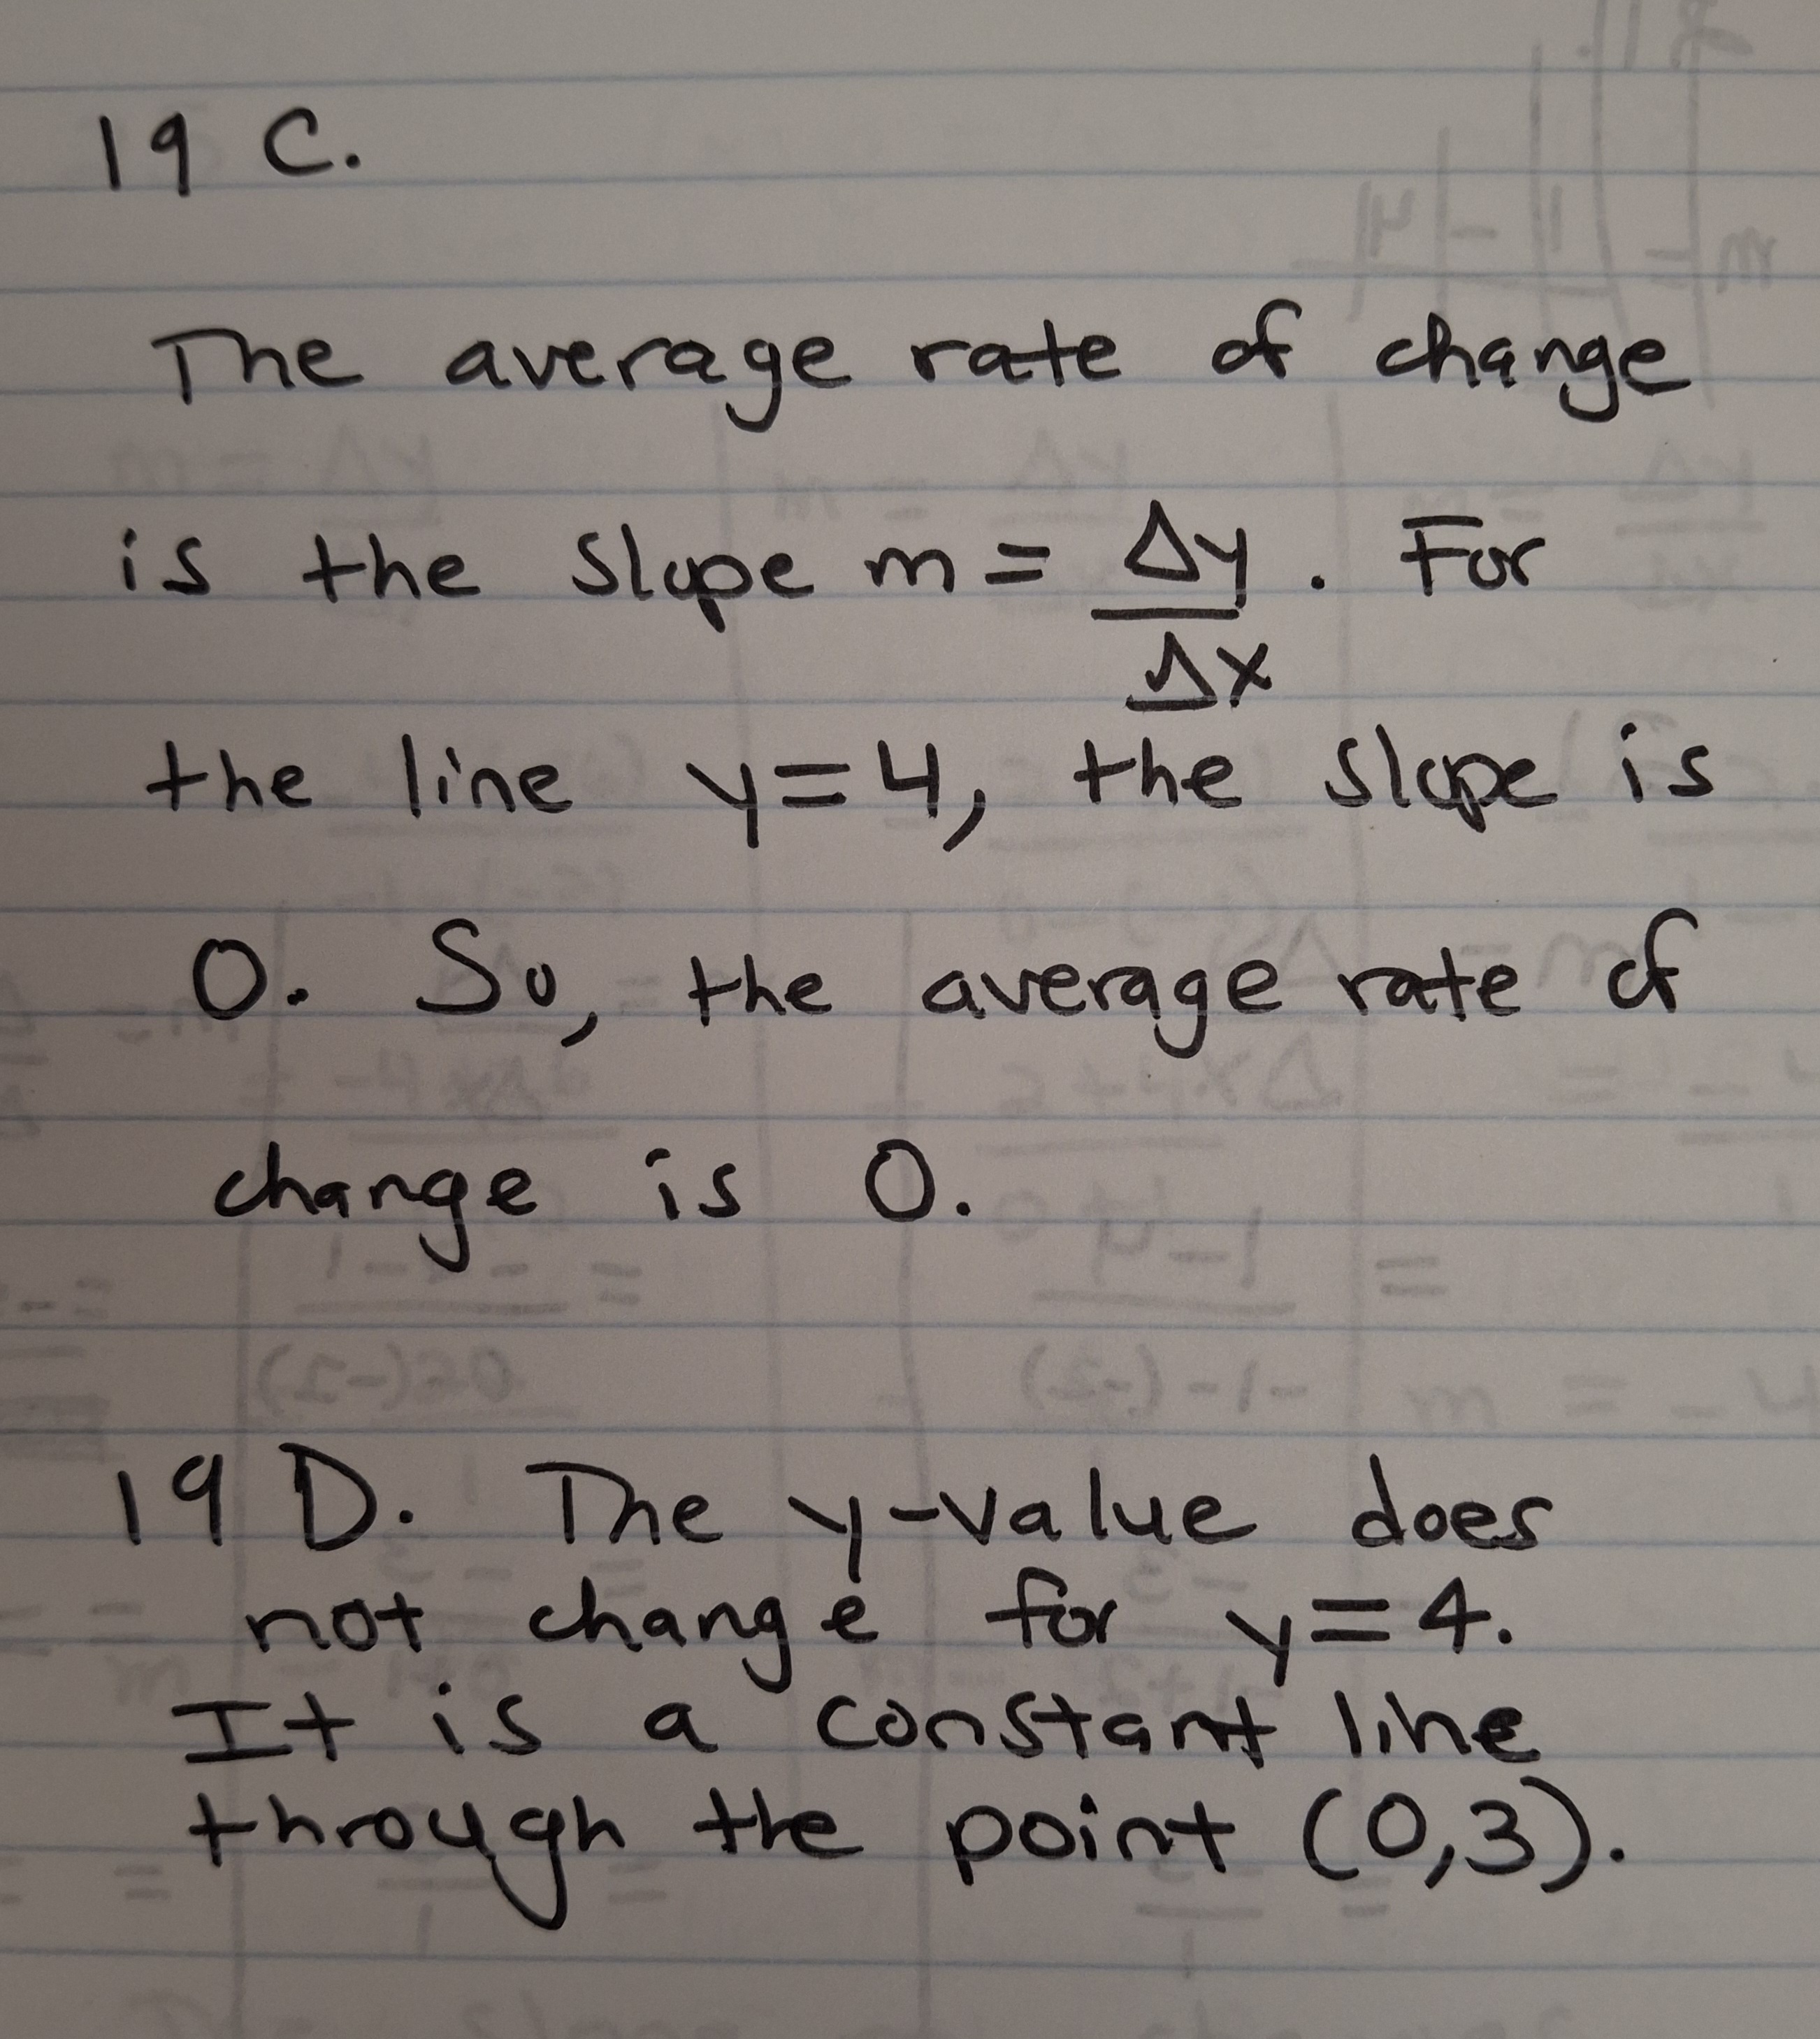 19 C.
The average rate of change
is the slope m = Δy/Δx. For
the line y=4, the slope is
0. So, the average rate of
change is 0.
19 D. The y-value does
not change for y=4.
It is a constant line
through the point (0,3).